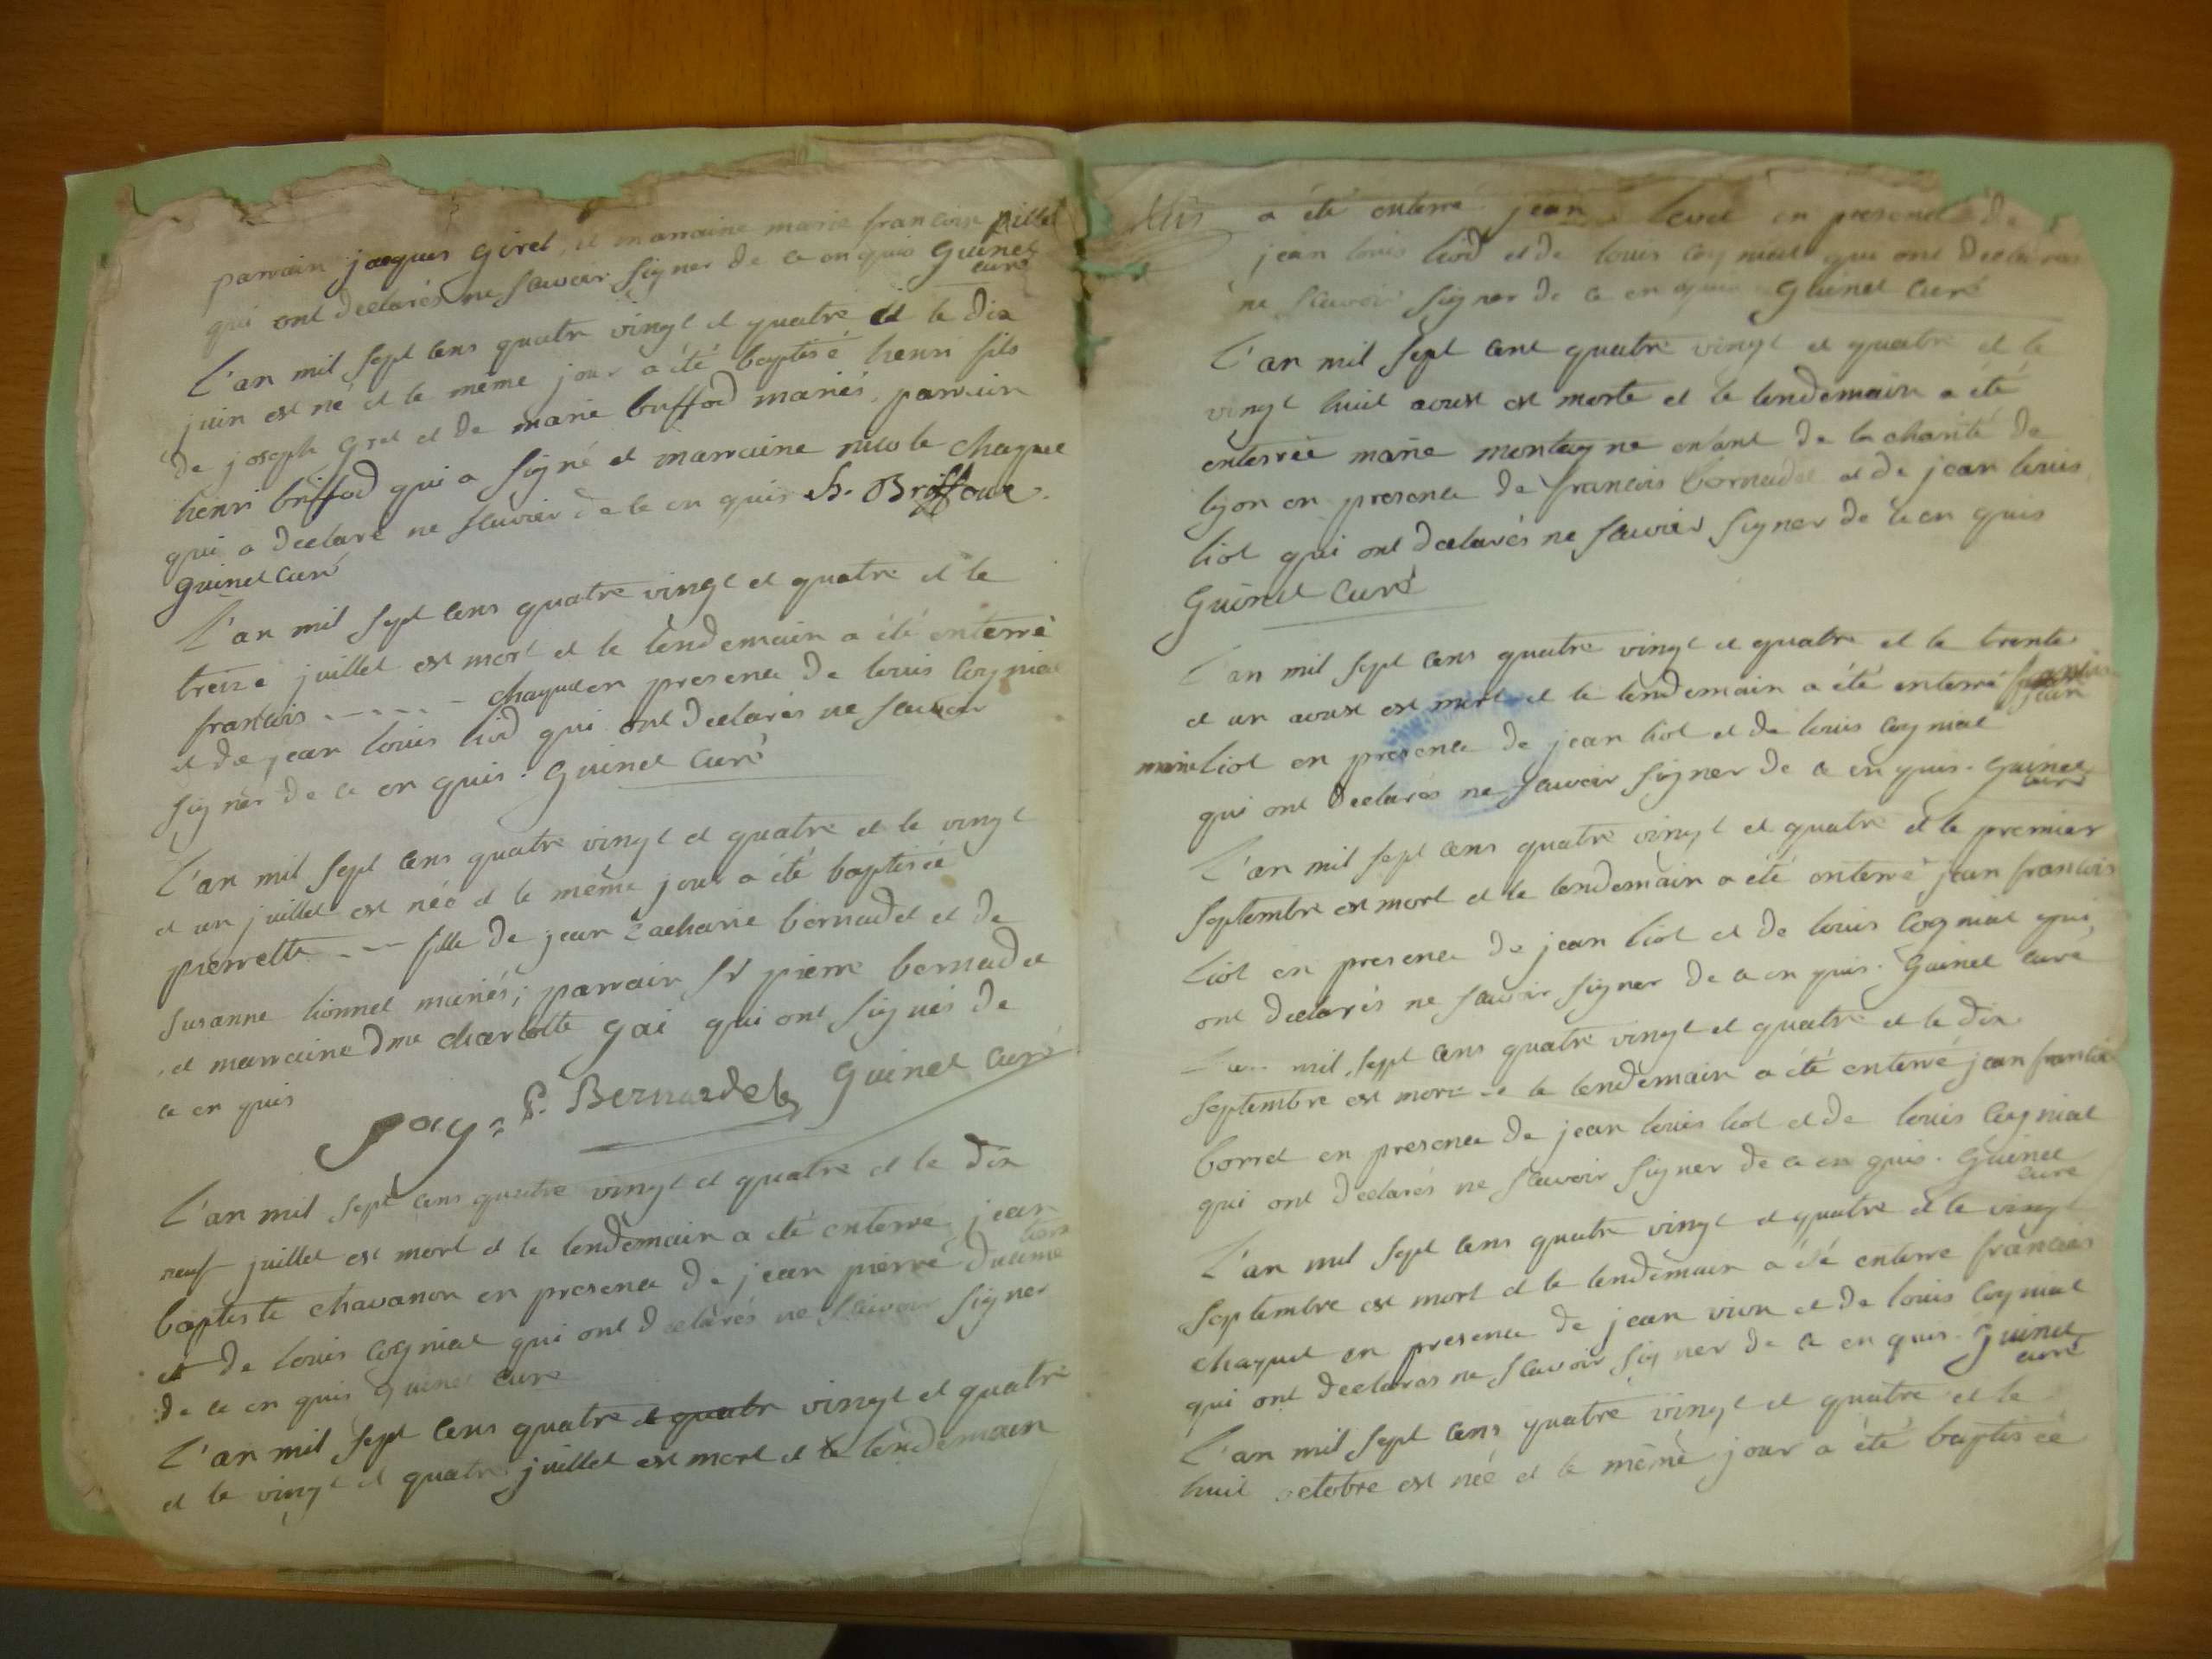 parrain jacques Girel, et marraine marie francoise pillet
qui ont declarés ne scavoir signer de ce enquis Guinet
curé
L'an mil sept cens quatre vingt et quatre et le dix
juin est né et le même jour a été baptisé henri fils
de joseph Grel et de marie briffod mariés, parrain
henri briffod qui a signé et marraine nicole chaquet
qui a declaré ne scavoir de ce en quis h. Briffoud.
Guinet curé
L'an mil sept cens quatre vingt et quatre et le
treize juillet est mort et le lendemain a été enterré
francois - - - - - chaquet en presence de louis Cogniat
et de jean louis liod qui ont declarés ne scavoir
signer de ce en quis. Guinet Curé
L'an mil sept cens quatre vingt et quatre et le vingt
et un juillet est née et le même jour a été baptisée
pierrette - - - fille de jean Zacharie bernadet et de
Susanne lionnet mariés; parrain Sr pierre bernadet
et marraine dme charlotte gai qui ont signés de
ce en quis
Gay = P. Bernardet Guinet Curé
L'an mil sept cens quatre vingt et quatre et le dix
neuf juillet est mort et le lendemain a été enterré jean
baptiste chavanon en presence de jean pierre
et de louis Cogniat qui ont declarés ne scavoir signer
de ce en quis Guinet Curé
L'an mil sept cens quatre et quatre vingt et quatre
et le vingt et quatre juillet est mort et le lendemain
a été enterré jean en presence de
jean louis liod et de louis Cogniat qui ont declarés
ne scavoir signer de ce en quis Guinet Curé
L'an mil sept cent quatre vingt et quatre et le
vingt huit aoust est morte et le lendemain a été
enterrée marie montagne enfant de la charité de
lyon en presence de francois bernadet et de jean louis
liot qui ont declarés ne scavoir signer de ce en quis
Guinet Curé
L'an mil sept cens quatre vingt et quatre et le trente
et un aoust est mort et le lendemain a été enterré
jean
marie liot en presence de jean liot et de louis Cogniat
qui ont declarés ne scavoir signer de ce en quis. Guinet
curé
L'an mil sept cens quatre vingt et quatre et le premier
Septembre est mort et le lendemain a été enterré jean francois
liot en presence de jean liot et de louis Cogniat qui
ont declarés ne scavoir signer de ce en quis. Guinet curé
L'an mil sept cens quatre vingt et quatre et le dix
Septembre est mort et le lendemain a été enterré jean francois
borret en presence de jean louis liot et de louis Cogniat
qui ont declarés ne scavoir signer de ce en quis. Guinet
curé
L'an mil sept cens quatre vingt et quatre et le vingt
Septembre est mort et le lendemain a été enterré francois
chaquet en presence de jean et de louis Cogniat
qui ont declarés ne scavoir signer de ce en quis. Guinet
curé
L'an mil sept cens quatre vingt et quatre et le
huit octobre est née et le même jour a été baptisée